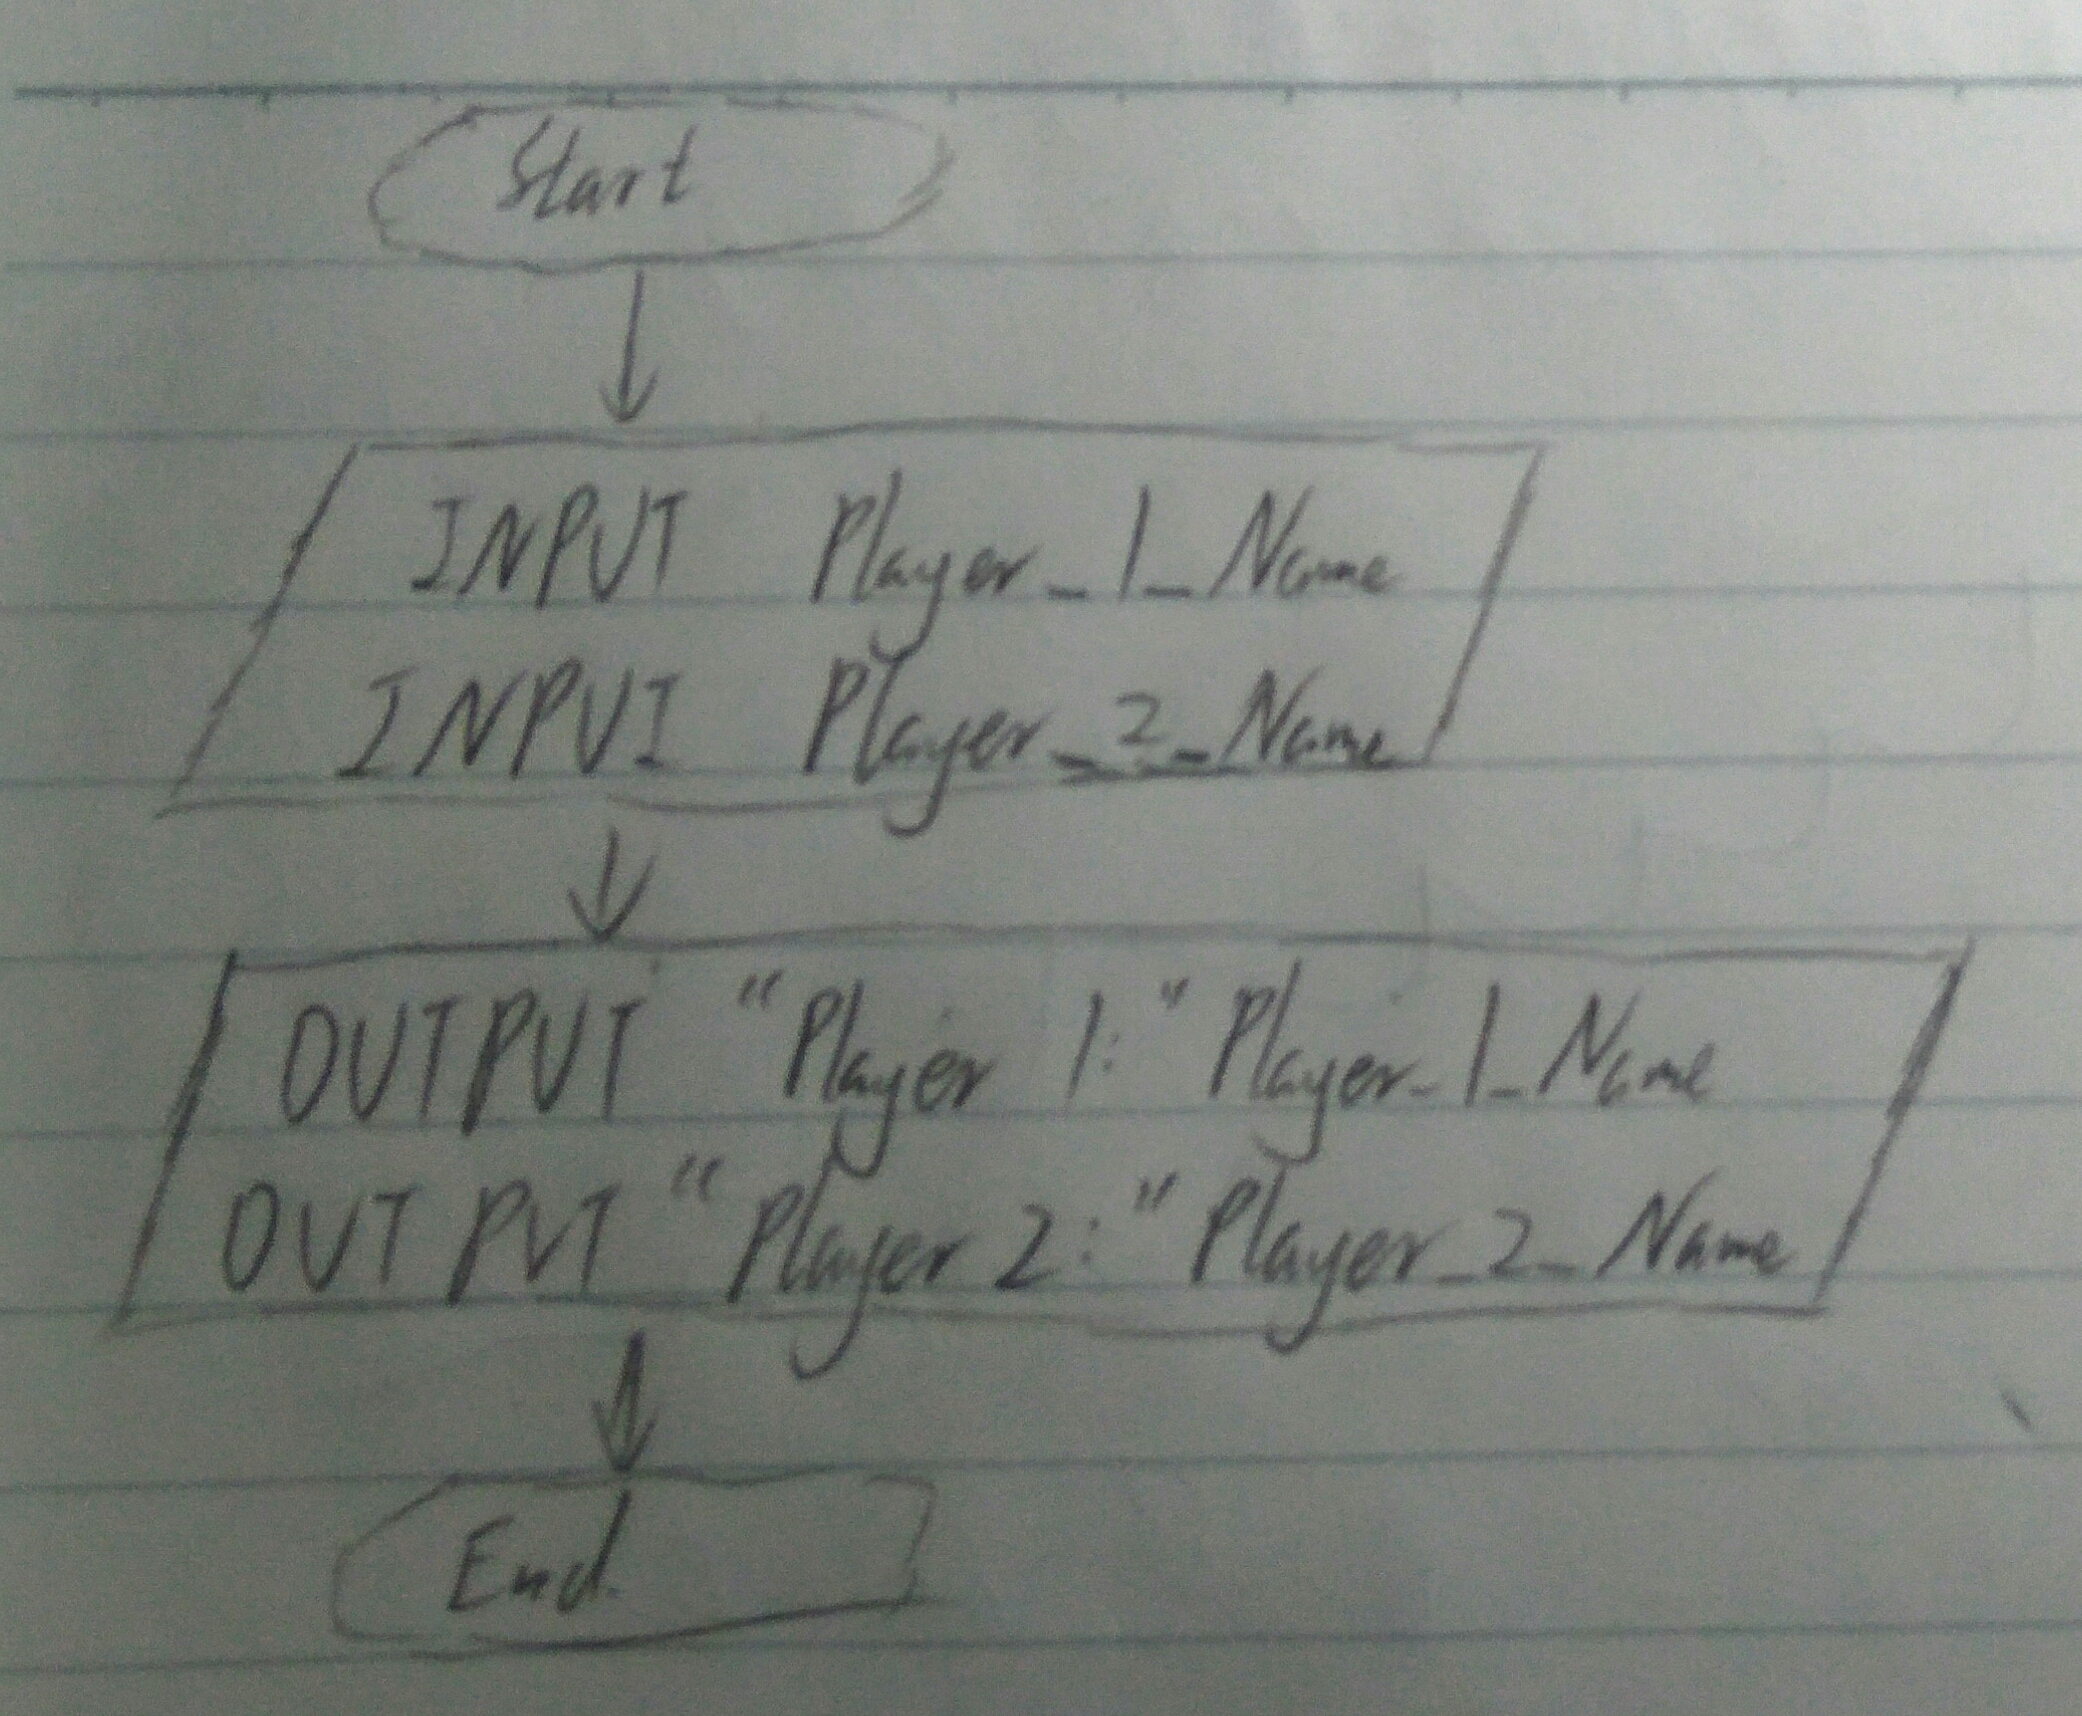 Start
INPUT Player_1_Name
INPUT Player_2_Name
OUTPUT "Player 1:" Player_1_Name
OUTPUT "Player 2:" Player_2_Name
End